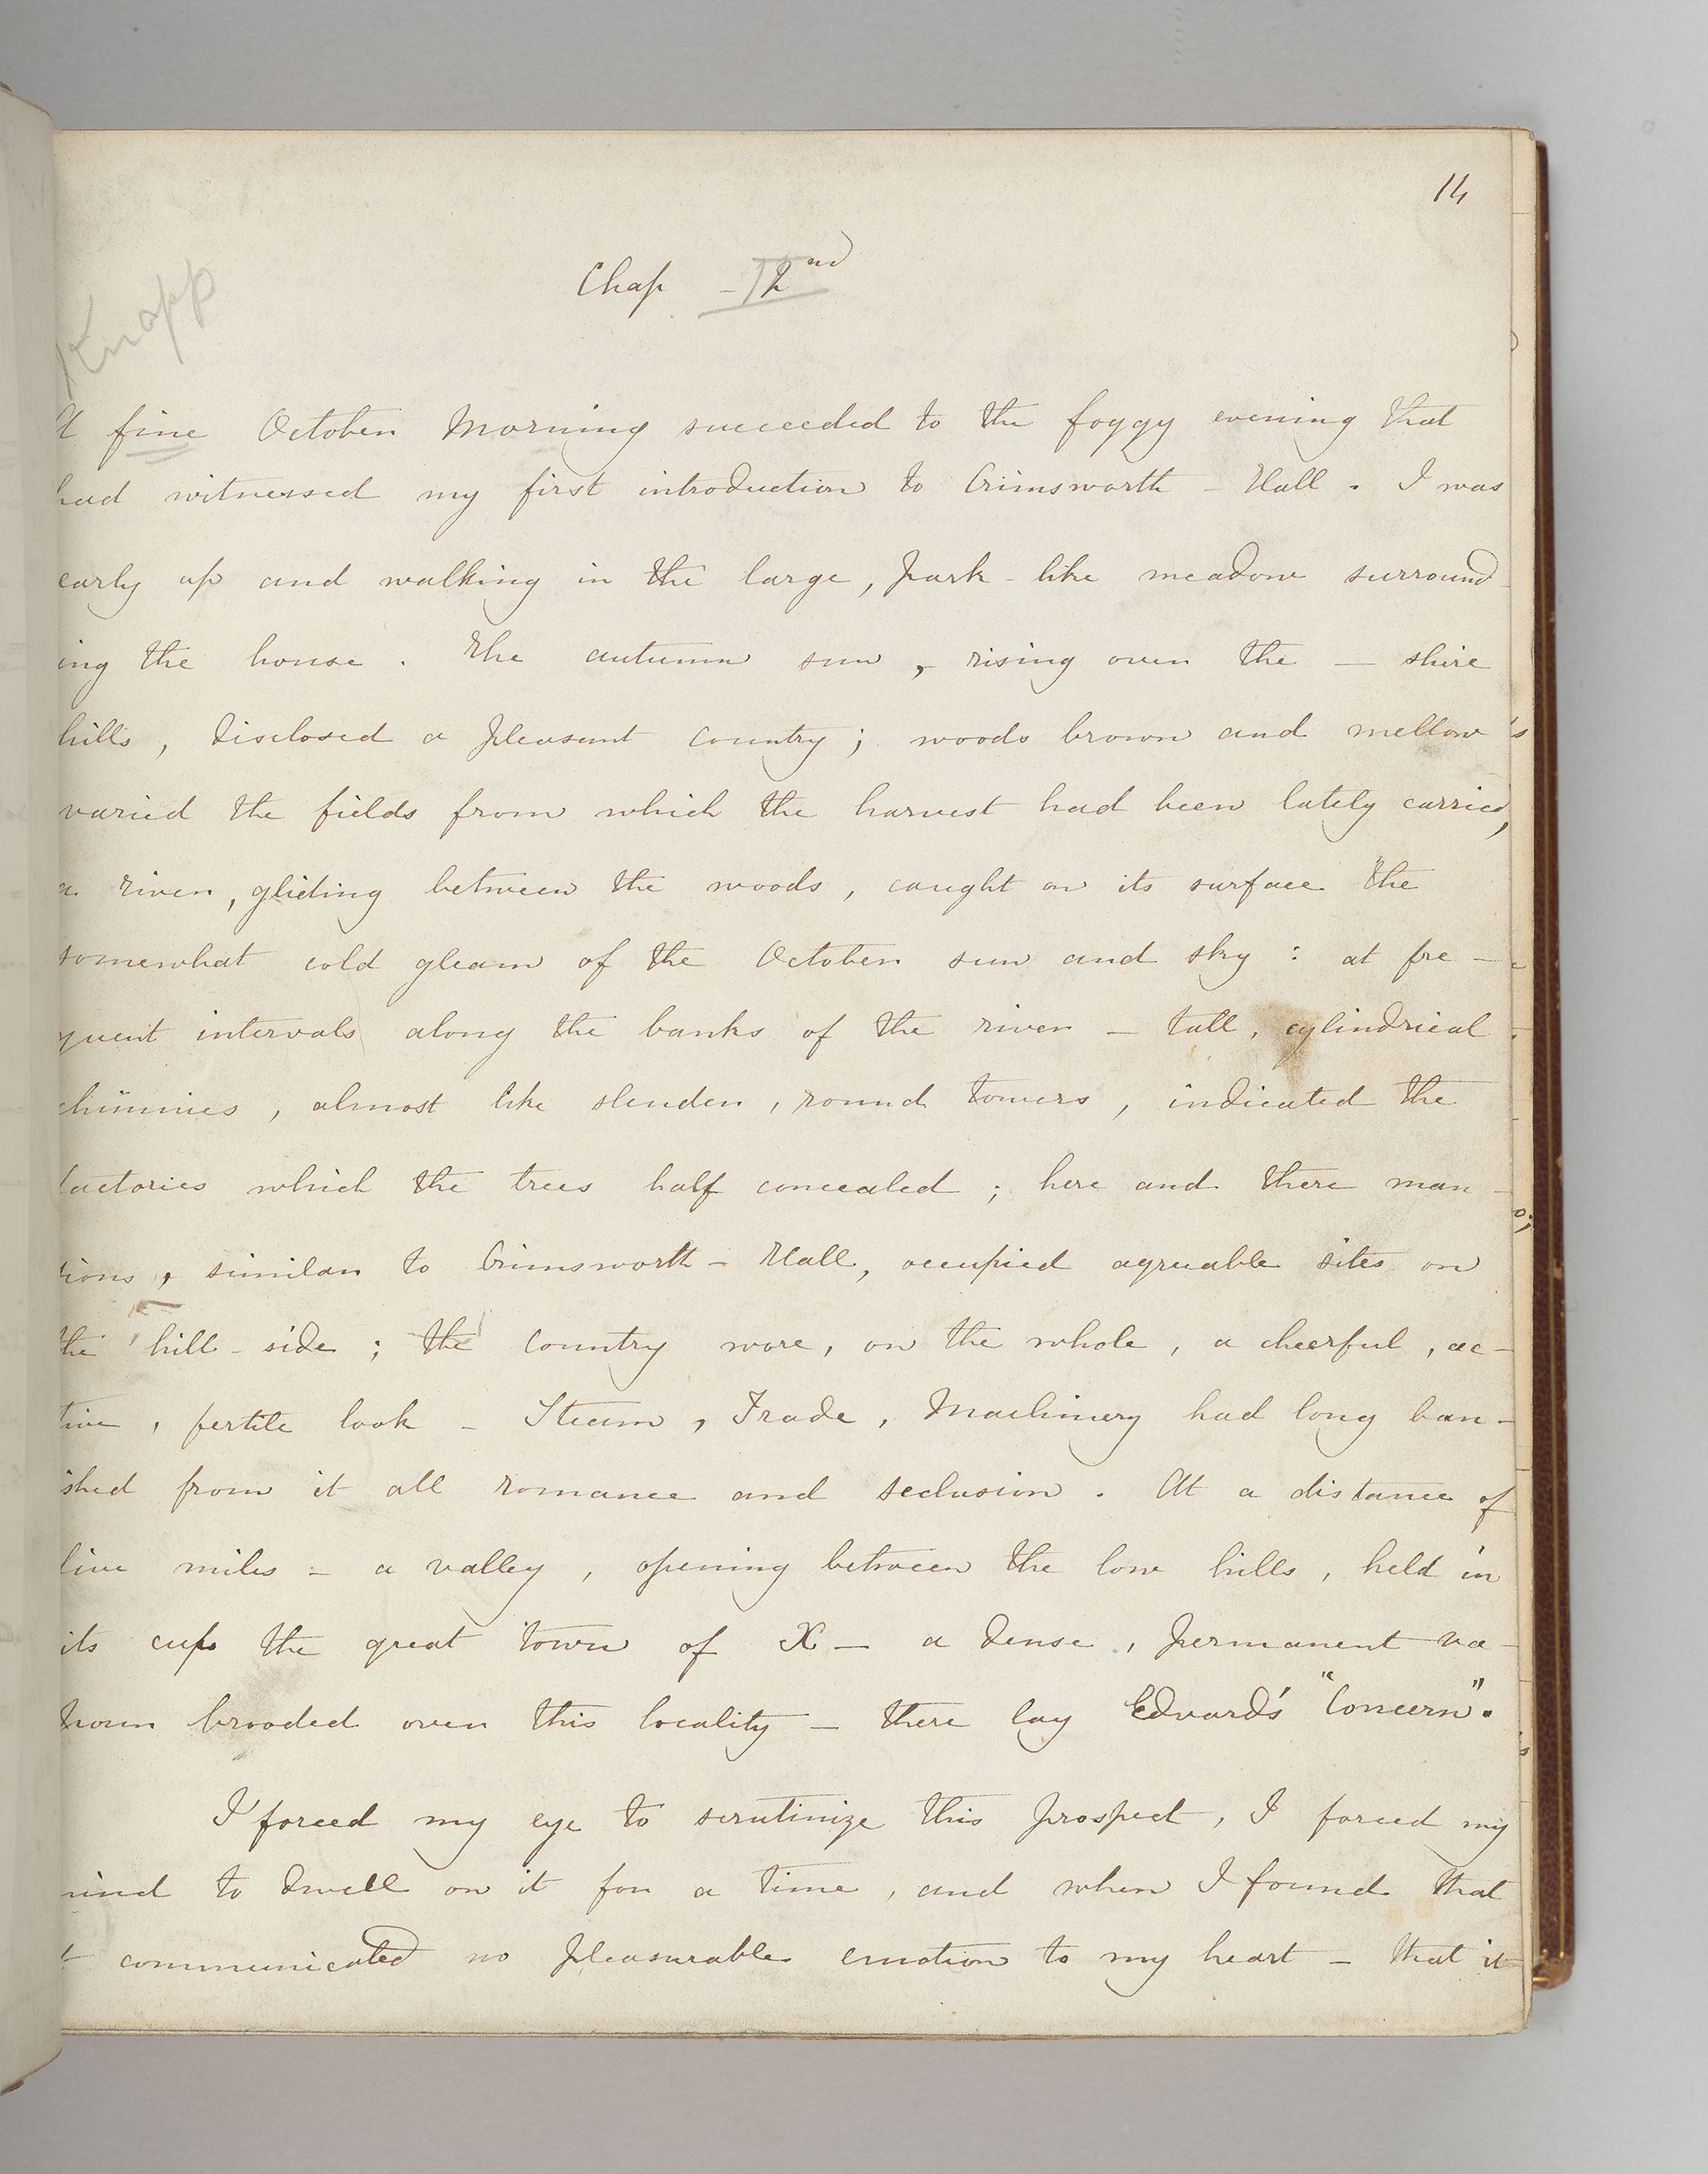 14
Chap - 2nd
Knapp
A fine October Morning succeeded to the foggy evening that
had witnessed my first introduction to Crimsworth - Hall. I was
early up and walking in the large, park-like meadow surround-
ing the house. The autumn sun, rising over the — shire
hills, disclosed a pleasant country; woods brown and mellow
varied the fields from which the harvest had been lately carried,
a river, gliding between the woods, caught on its surface the
somewhat cold gleam of the October sun and sky: at fre-
quent intervals along the banks of the river - tall, cylindrical
chimnies, almost like slender, round towers, indicated the
factories which the trees half concealed; here and there man-
sions, similar to Crimsworth-Hall, occupied agreeable sites on
the hill-side; the country wore, on the whole, a cheerful, ac-
tive, fertile look - Steam, Trade, Machinery had long ban-
ished from it all romance and seclusion. At a distance of
five miles - a valley, opening between the low hills, held in
its cups the great town of X— a dense, permanent va-
pour brooded over this locality - there lay Edward's "Concern".
I forced my eye to scrutinize this prospect, I forced my
mind to dwell on it for a time, and when I found that
it communicated no pleasurable emotion to my heart - that it